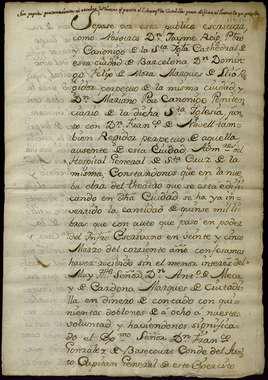 Sepase por esta publica escritura
como Nosotros Dn. Jayme Roig Pbro.
y Canonigo de la Sta. Igla. Cathedral
de esta ciudad de Barcelona Dn. Domin-
go Felix de Mora Marques de Llió Re-
gidor perpetuo de la misma ciudad, y
Dn. Mariano Pbro. Canonigo Peniten-
ciario de la dicha Sta. Iglesia, jun-
to con Dn. Franco. de Novell tam-
bien Regidor perpetuo de aquella
ausente de esta Ciudad, Admres. del
Hospital General de Sta. Cruz de la
misma, Considerando que en la nue-
ba obra del Theatro que se esta edifi-
cando en dha Ciudad se ha ya in-
vertido la cantidad de quinse mil li-
bras que con auto que paso en poder
del Infro. Escrivano en veinte y cinco
Marzo del corriente año, con fesamos
haver recibido sin el menor interes del
Muy Iltre. Señor Dn. Anto. de Meca
y de Cardona Marques de Ciutadi-
lla en dinero de contado con qui-
nientos doblones de â ocho a nuestra
voluntad, y haviendonos significa-
do el Exmo. Señor Dn. Franco.
Gonzalez de Bassecourt Conde del Asal-
to Capitan General de este Exercito